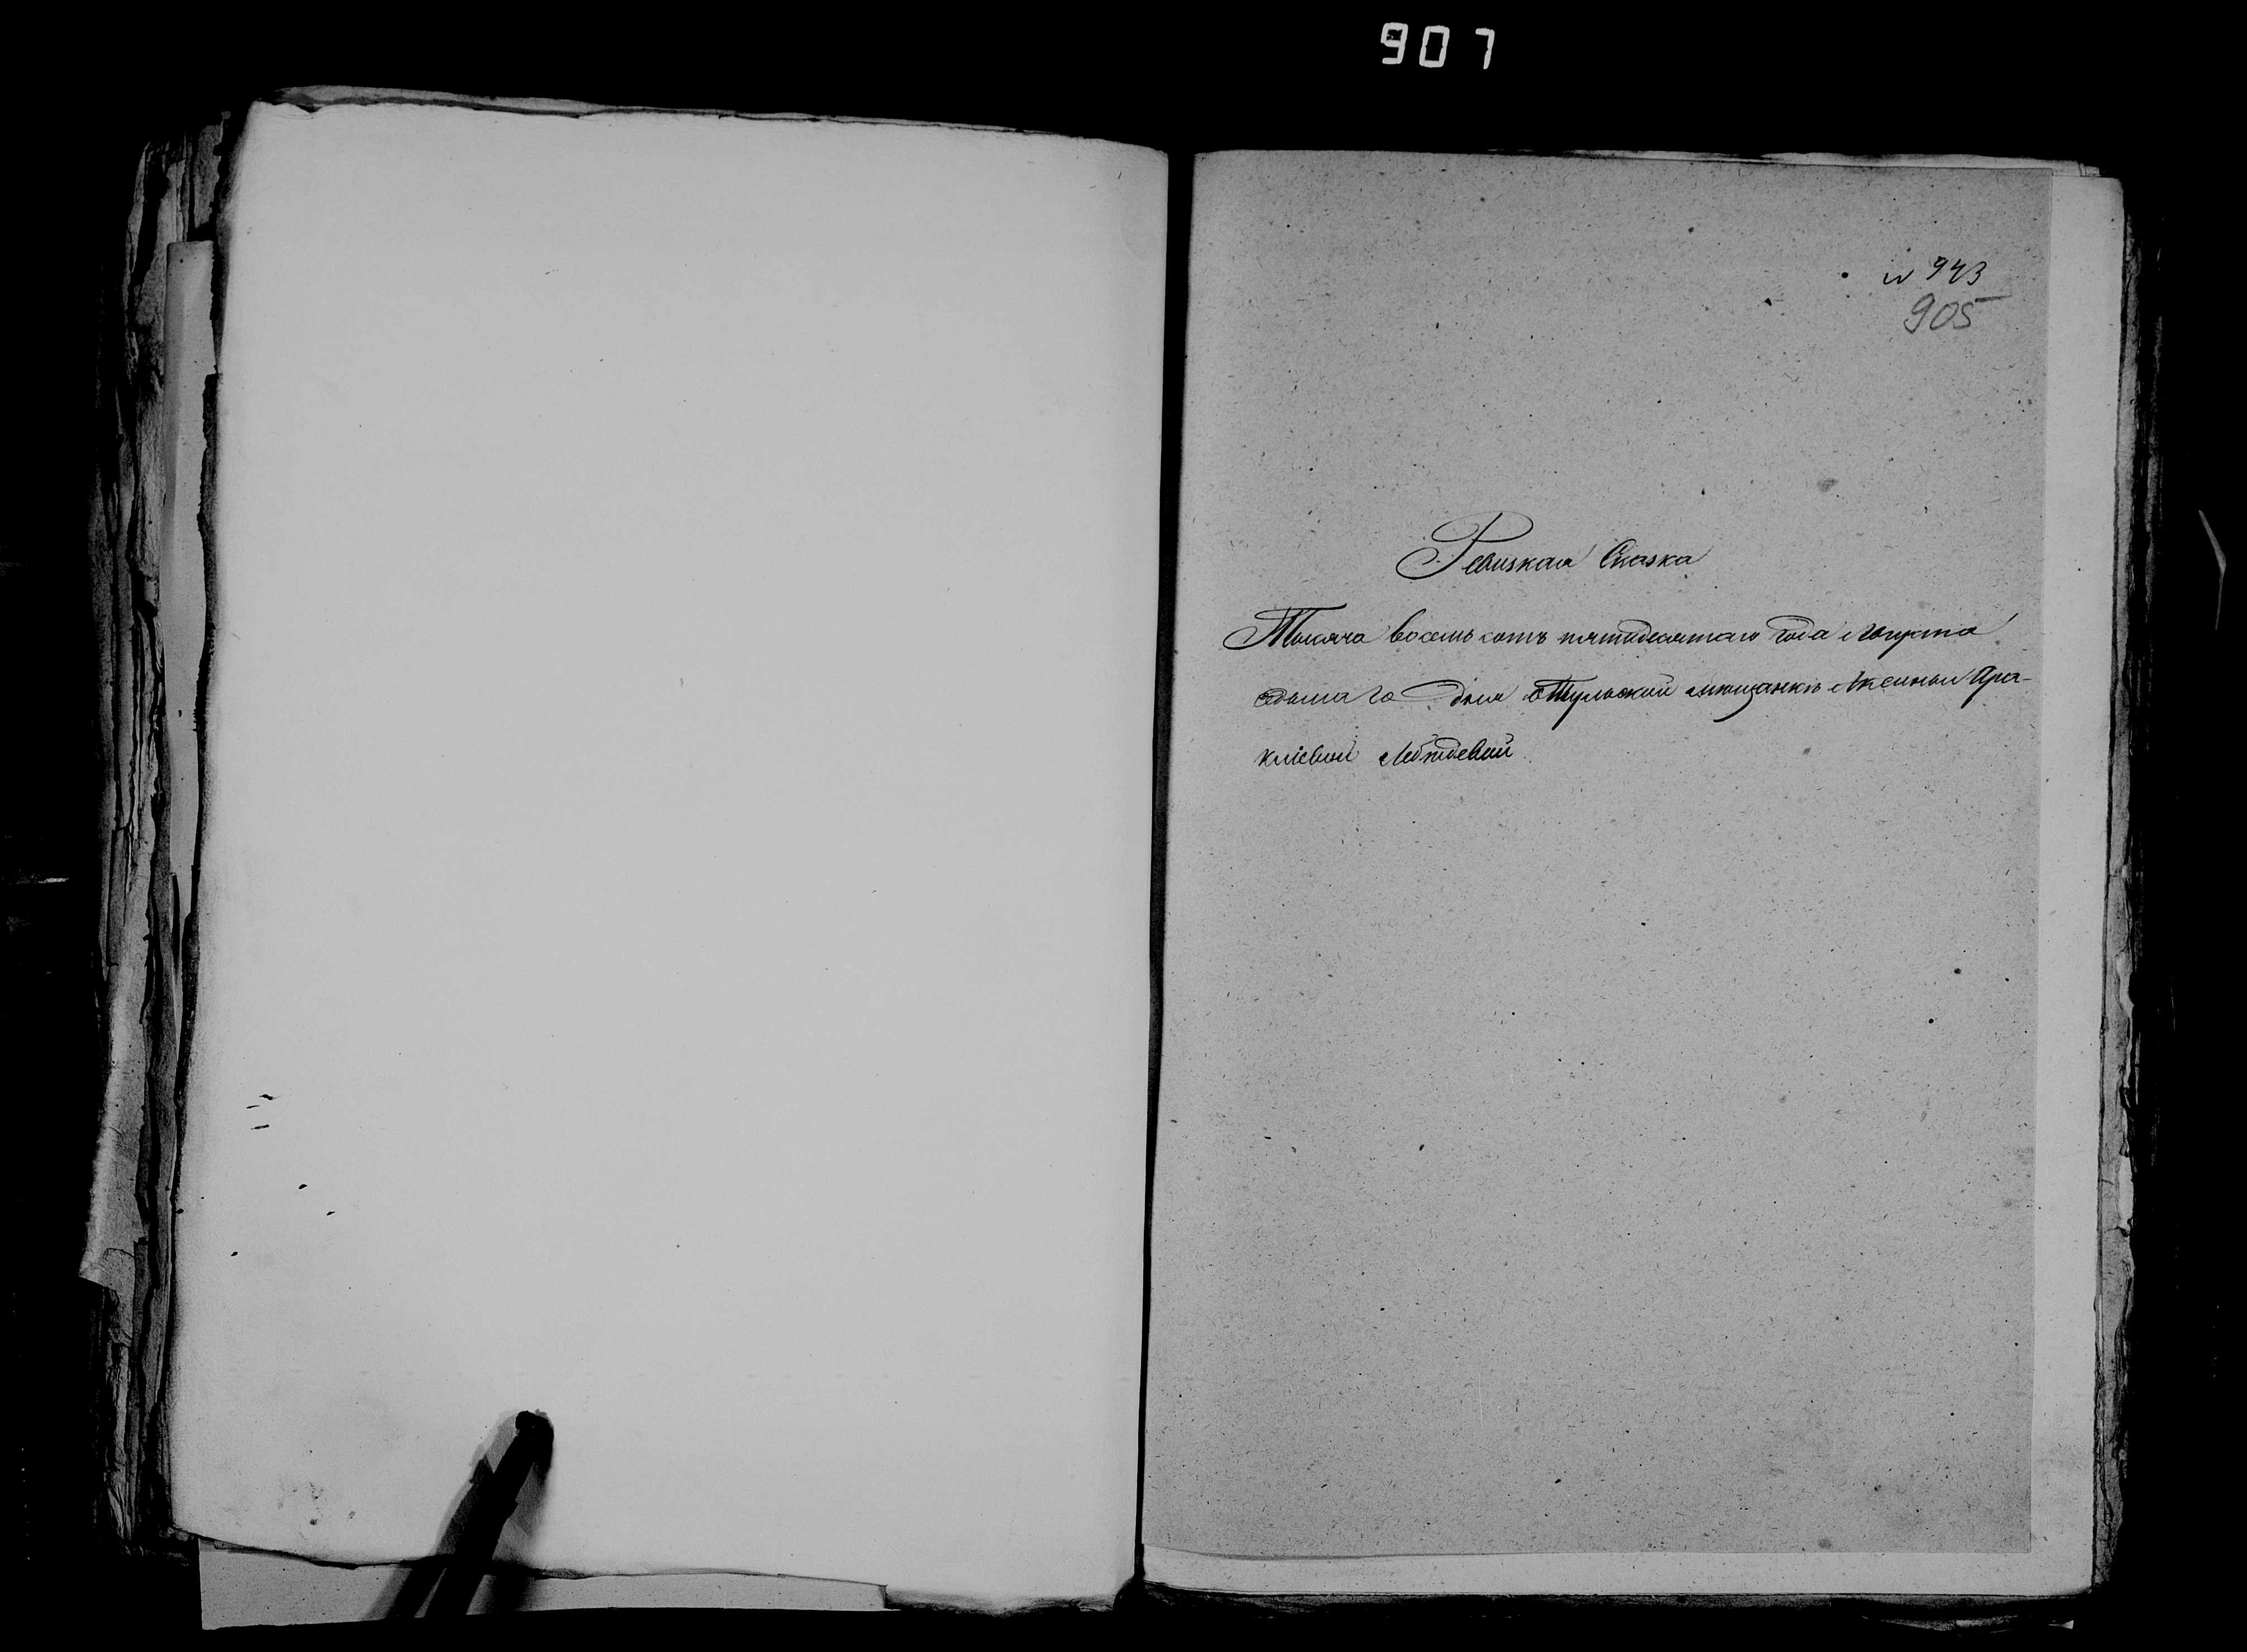 907
№ 943
905
Ревизкая Сказка
Тысяча восемь сотъ пятидесятаго года Августа
седьмаго дня о Тульской мещанкѣ Аксиньи Ира-
клiевой Лебедевой